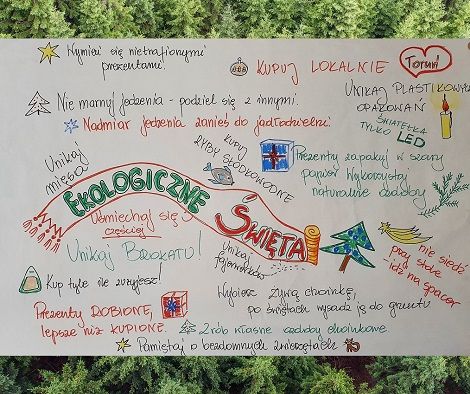 Wymień się nietrafionymi
prezentami!
KUPUJ LOKALNIE
Toruń
UNIKAJ PLASTIKOWYCH
OPAKOWAŃ
ŚWIATEŁKA
TYLKO LED
Nie marnuj jedzenia - podziel się z innymi.
Nadmiar jedzenia zanieś do jadłodzielni
Unikaj
mięsa
KUPUJ
RYBY SŁODKOWODNE
Prezenty zapakuj w szary
papier Wykorzystaj
naturalne ozdoby
EKOLOGICZNE
ŚWIĘTA
Uśmiechaj się
częściej
Unikaj BROKATU!
Unikaj
fajerwerków
nie siedź
przy stole
- idź na spacer
Kup tyle ile zużyjesz!
Wybierz żywą choinkę,
po świętach wysadź ją do gruntu
Prezenty ROBIONE,
lepsze niż KUPIONE.
Zrób własne ozdoby choinkowe.
Pamiętaj o bezdomnych zwierzętach